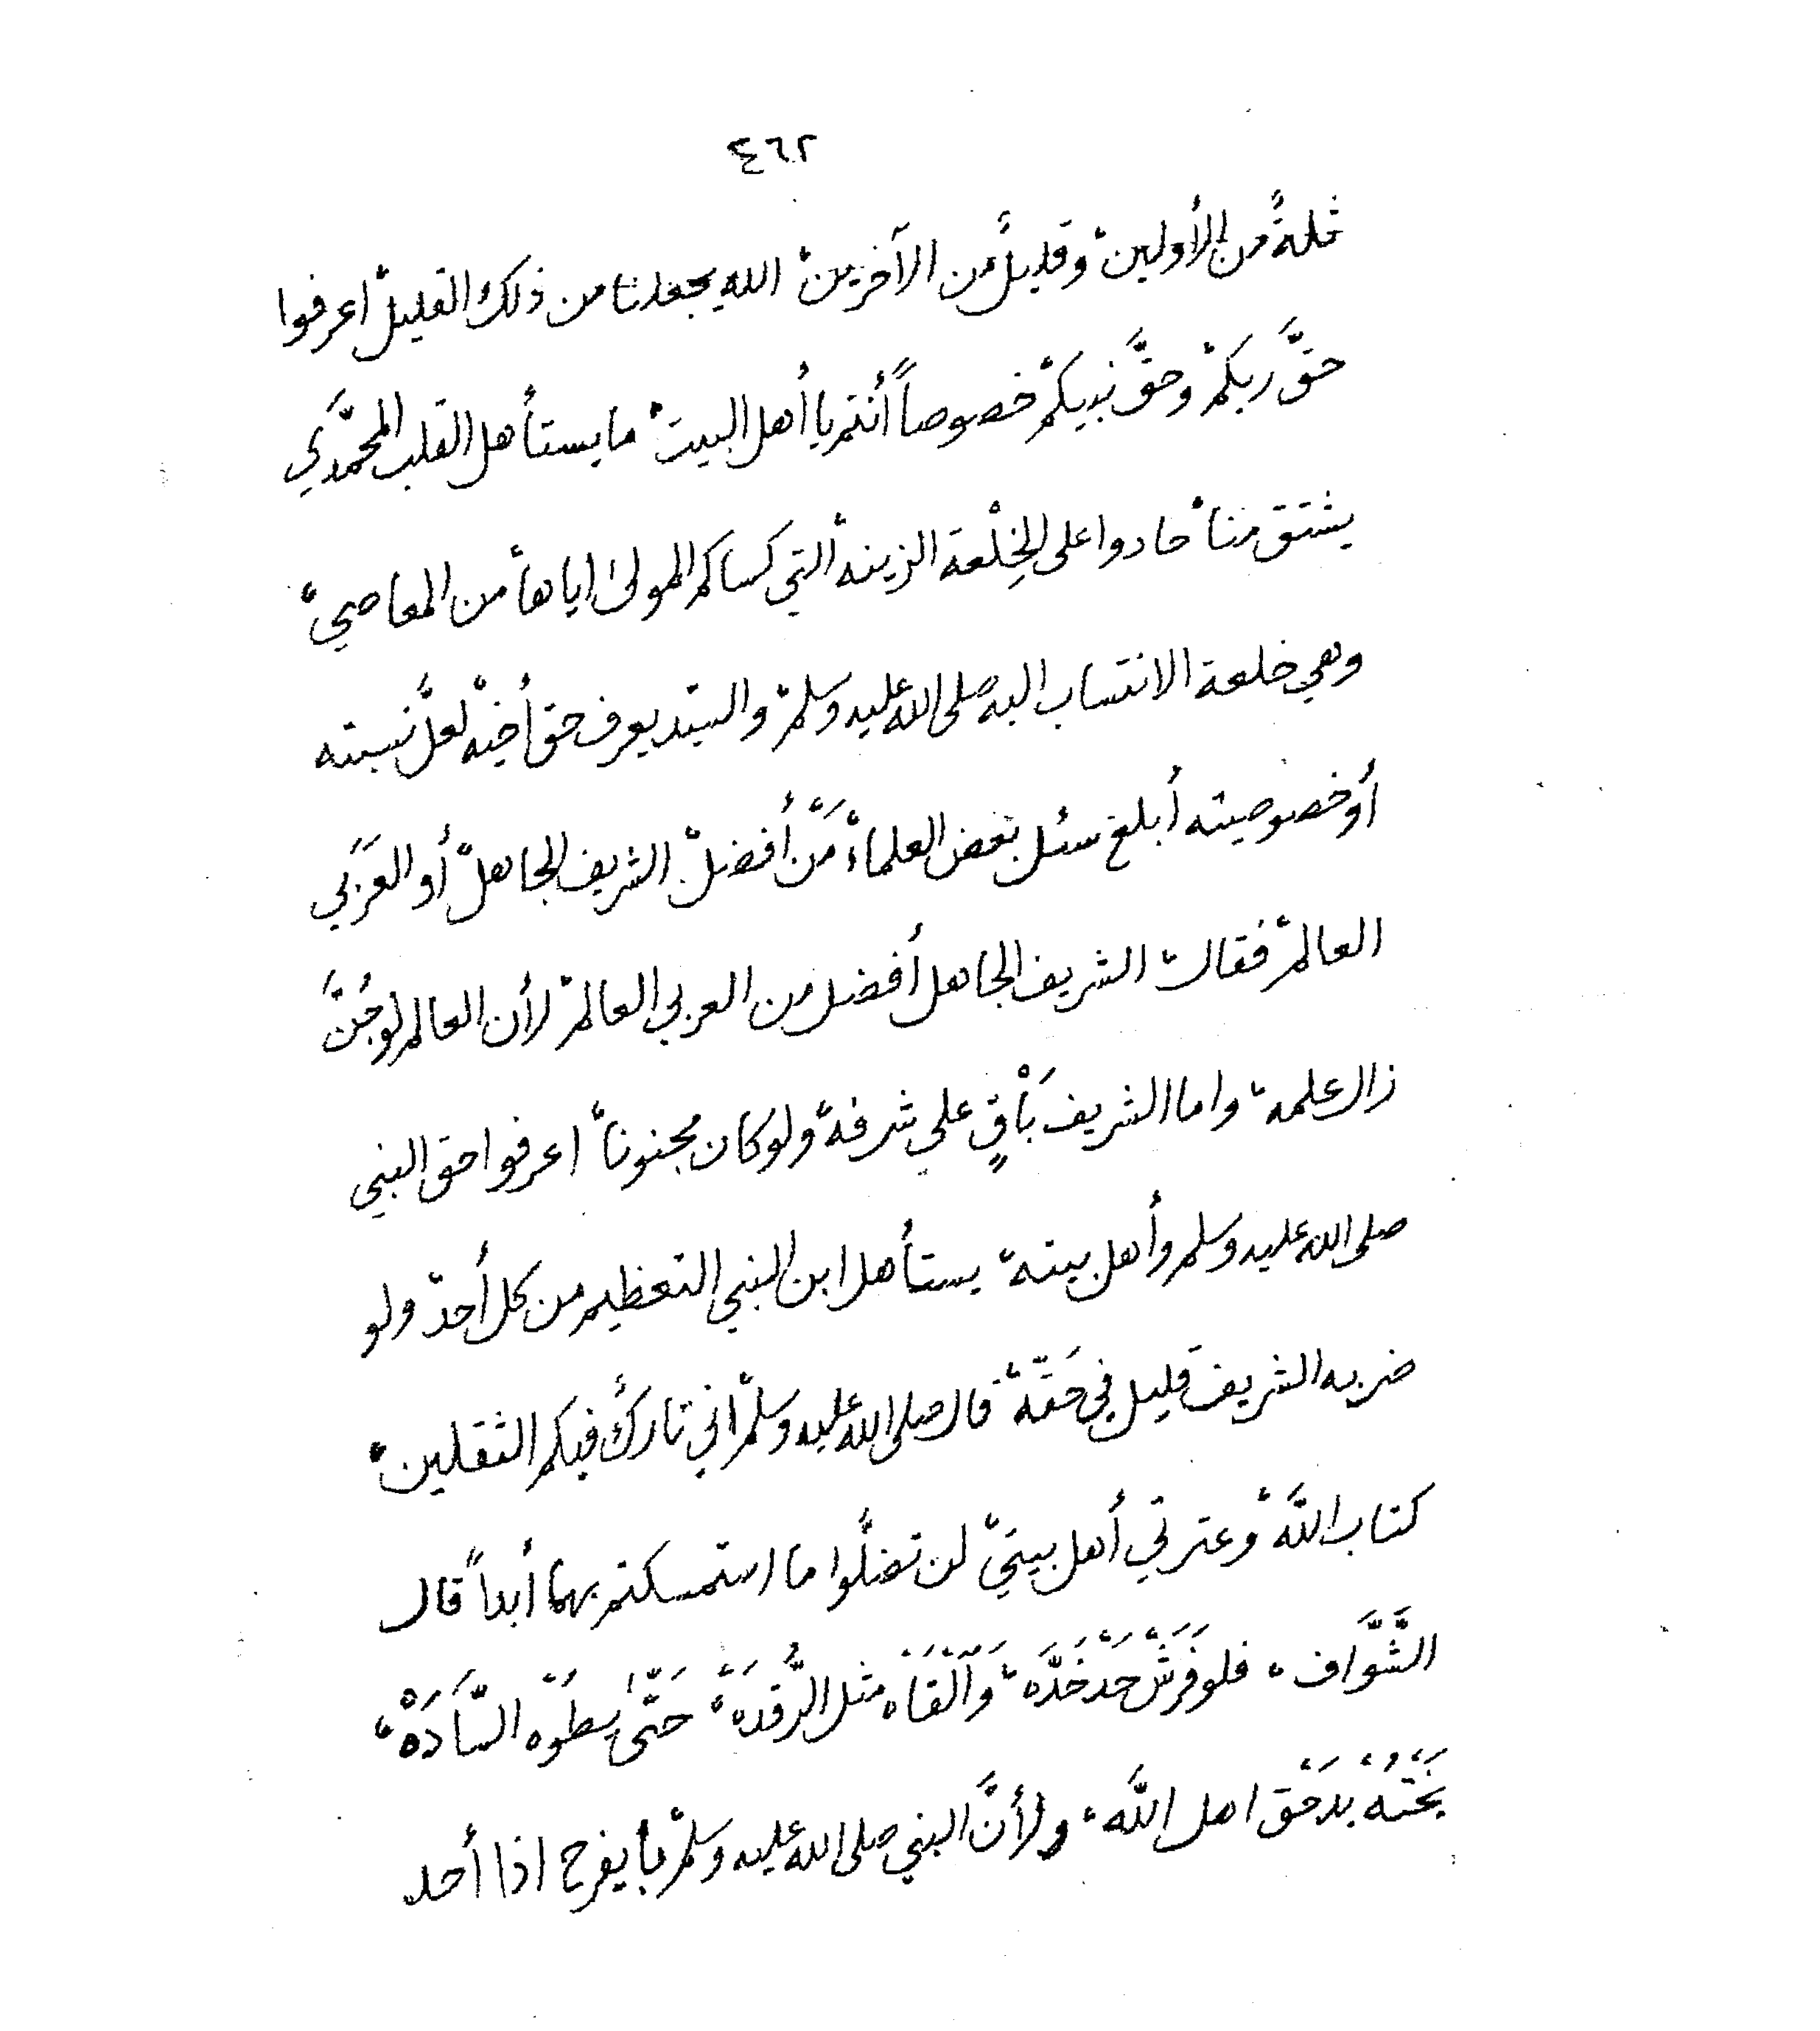 ٤٦٢
ثلةٌ من الأولين، وقليلٌ من الآخرين، الله يجعلنا من ذلك القليل، اعرفوا
حقَّ ربكم، وحقَّ نبيكم، خصوصاً أنتم يا أهل البيت، ما يستأهل القلب المحمَّدي
يشتق منا، حادوا على الخِلْعة الزينه، التي كساكم المولى اياها، من المعاصي،
وهي خلعة الانتساب اليه صلى الله عليه وسلم، والسيّد يعرف حق أخيْه، لعلَّ نسبته
أو خصوصيته أبلغ سئل بعض العلماء، مَنْ أفضل، الشريف الجاهل، أو العَرَبي
العالم، فقال، الشريف الجاهل أفضل من العربي العالم، لأن العالم لو جُنَّ
زال علمه، واما الشريف بَاْقٍ على شرفه، ولو كان مجنوناً، اعرفوا حق النبي
صلى الله عليه وسلم وأهل بيته، يستأهل ابن النبي التعظيم من كل أحد، ولو
ضربه الشريف قليل في حَقّه، قال صلى الله عليه وسلم، اني تاركٌ فيكم الثقلين،
كتاب اللَّه، وعترتي أهل بيتي، لن تضلُّوا ما استمسكتم بهما أبداً، قال
الشَّوَّاف، فلو فَرَشْ حَدْ خَدَّه، وَاَلْقَاه مثل الرُّقدَهْ، حَتَّىٰ يطَوْه السَّاَدَهْ،
بَخْتُهْ بدَحْق اهل اللَّه، ولأنَّ النبي صلى الله عليه وسلم، با يفرح اذا أحد